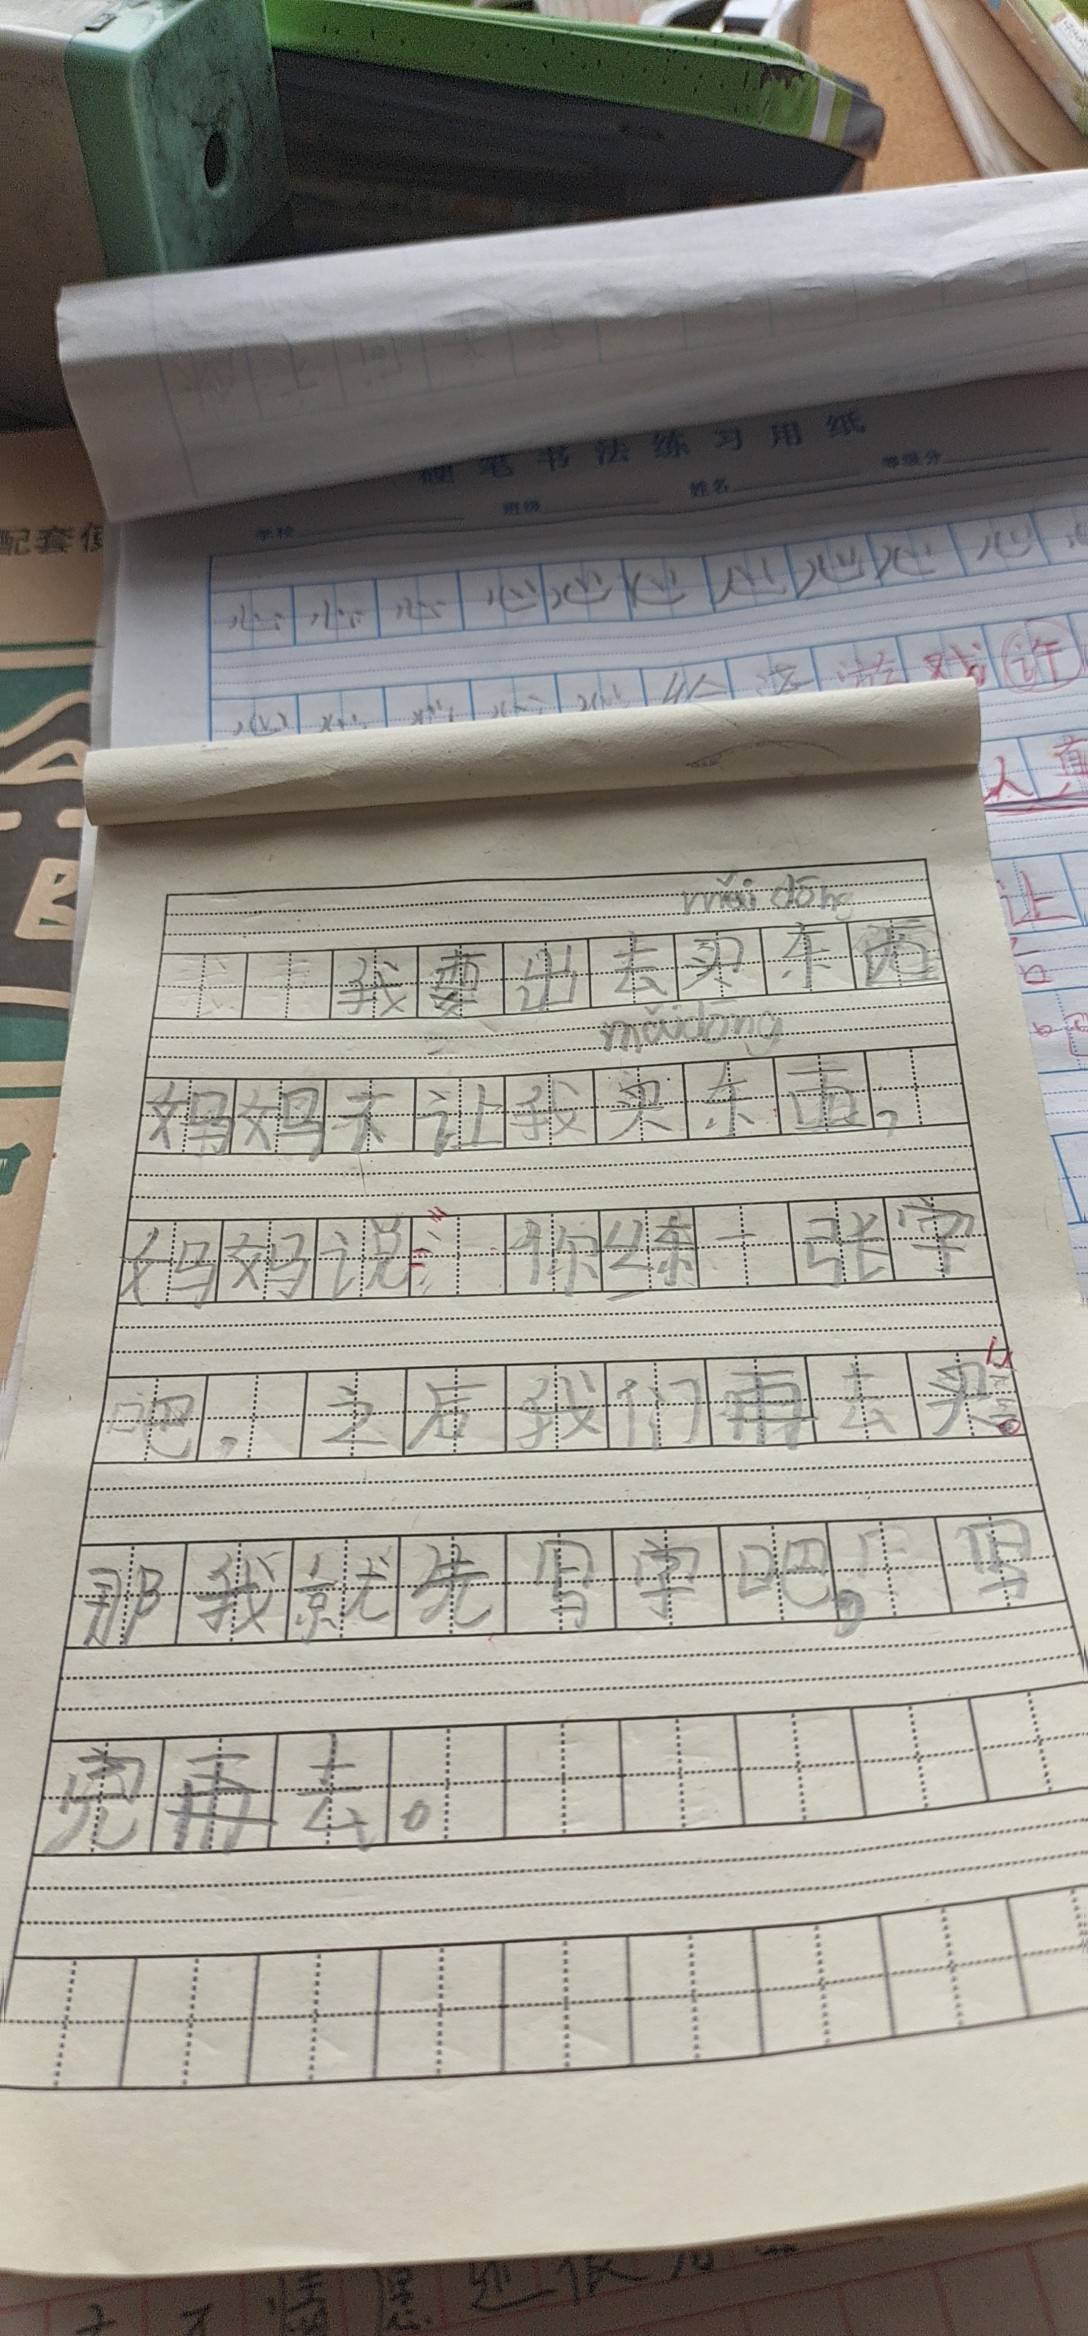 硬笔书法练习用纸
学校 班级 姓名 等级分
心 心 心 心 心 心 心 心 心 心
游戏 许
配套使
人真
让
mǎi dōng
我要出去买东西
mǎi dōng
妈妈未让我买东西,
妈妈说:“你练一张字
吧,之后我们再去买。”
那我就先写字吧,写
完再去。
情愿